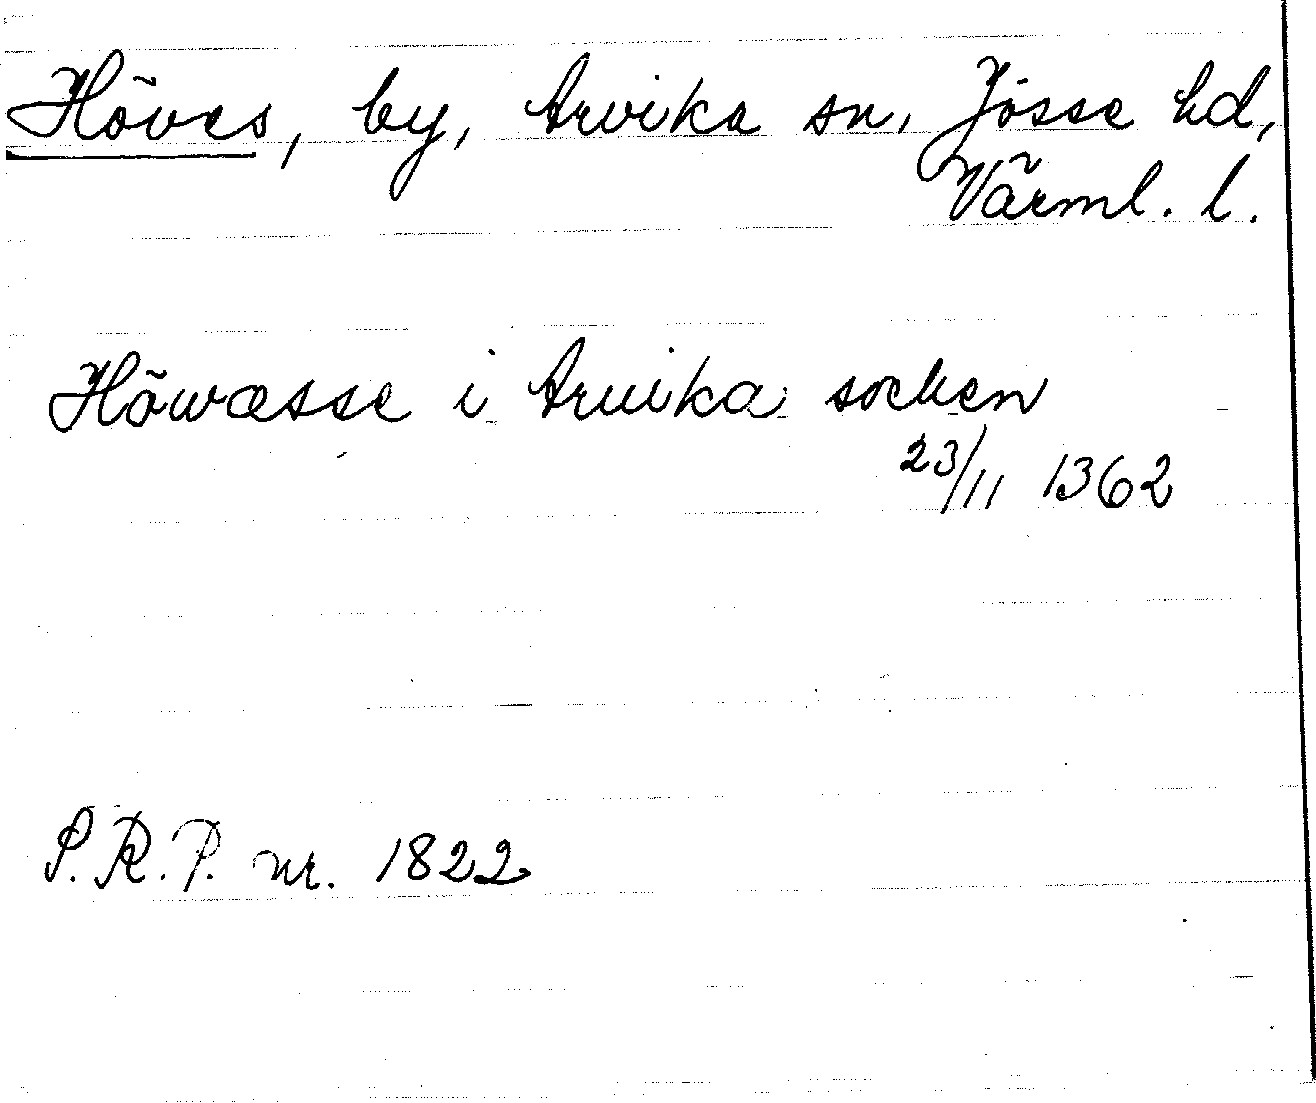 Höves, by, Arvika sn, Jösse hd,
Värml. l.
Höwæsse i Arvika socken
23/11 1362
S.R.P. nr. 1822